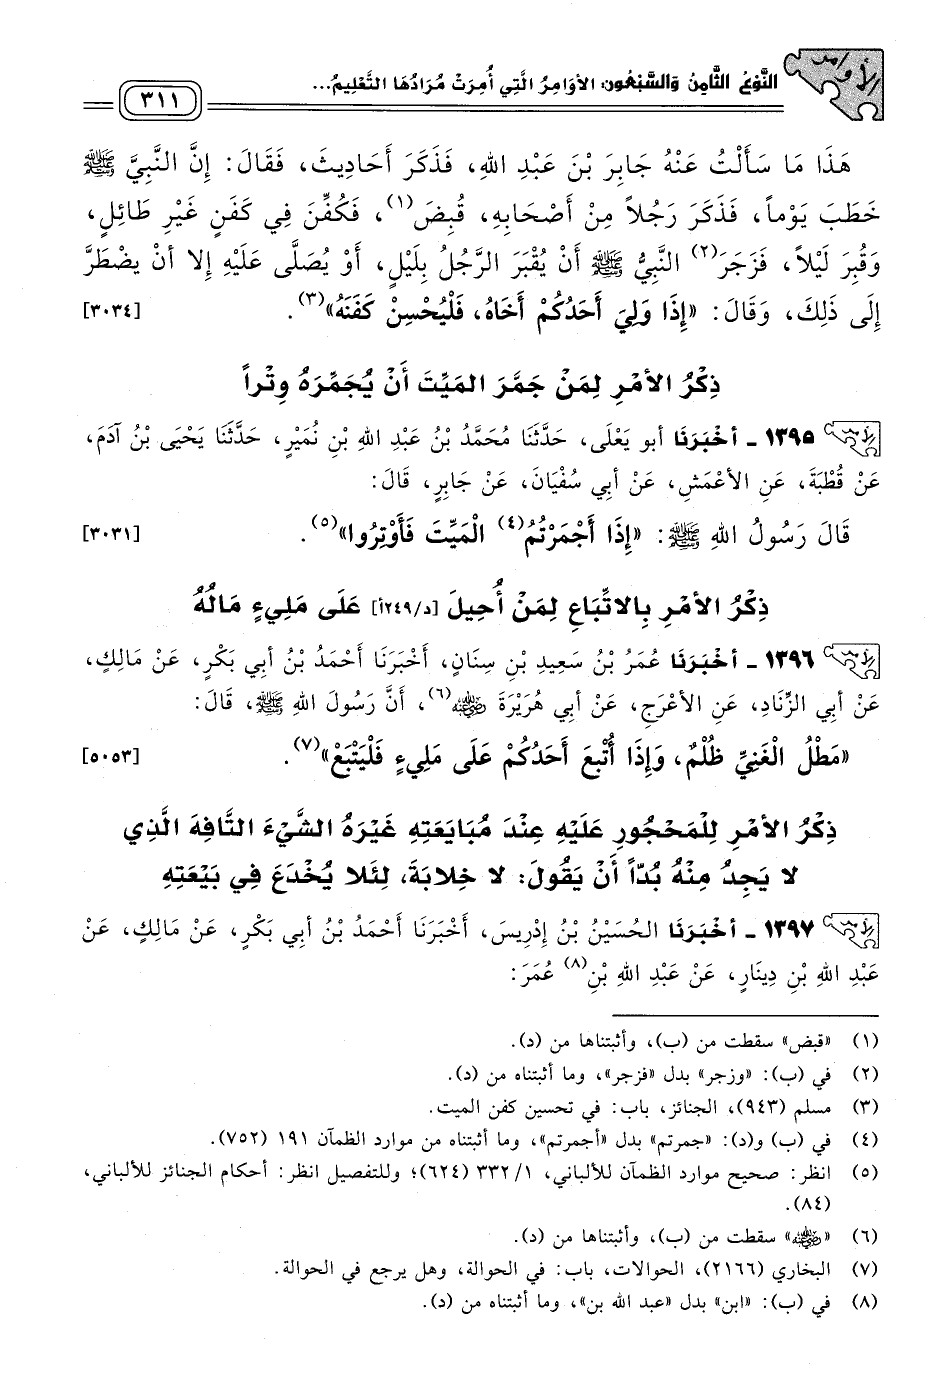 الأوامر
النَّوْعُ الثَّامِنُ وَالسَّبْعُونَ: الأَوَامِرُ الَّتِي أُمِرَتْ مُرَادُهَا التَّعْلِيمُ...
٣١١
هَذَا مَا سَأَلْتُ عَنْهُ جَابِرَ بْنَ عَبْدِ اللهِ، فَذَكَرَ أَحَادِيثَ، فَقَالَ: إِنَّ النَّبِيَّ ﷺ
خَطَبَ يَوْماً، فَذَكَرَ رَجُلاً مِنْ أَصْحَابِهِ، قُبِضَ(١)، فَكُفِّنَ فِي كَفَنٍ غَيْرِ طَائِلٍ،
وَقُبِرَ لَيْلاً، فَزَجَرَ(٢) النَّبِيُّ ﷺ أَنْ يُقْبَرَ الرَّجُلُ بِلَيْلٍ، أَوْ يُصَلَّى عَلَيْهِ إِلا أنْ يضْطَرَّ
إِلَى ذَلِكَ، وَقَالَ: «إِذَا وَلِيَ أَحَدُكُمْ أَخَاهُ، فَلْيُحْسِنْ كَفَنَهُ»(٣). [٣٠٣٤]
ذِكْرُ الأَمْرِ لِمَنْ جَمَّرَ المَيِّتَ أَنْ يُجَمِّرَهُ وِتْراً
١٣٩٥ - أخْبَرَنَا أبو يَعْلَى، حَدَّثَنَا مُحَمَّدُ بْنُ عَبْدِ اللهِ بْنِ نُمَيْرٍ، حَدَّثَنَا يَحْيَى بْنُ آدَمَ،
عَنْ قُطْبَةَ، عَنِ الأَعْمَشِ، عَنْ أَبِي سُفْيَانَ، عَنْ جَابِرٍ، قَالَ:
قَالَ رَسُولُ اللهِ ﷺ: «إِذَا أَجْمَرْتُمُ(٤) الْمَيِّتَ فَأَوْتِرُوا»(٥). [٣٠٣١]
ذِكْرُ الأَمْرِ بِالاتِّبَاعِ لِمَنْ أُحِيلَ [د/٢٤٩أ] عَلَى مَلِيءٍ مَالُهُ
١٣٩٦ - أخْبَرَنَا عُمَرُ بْنُ سَعِيدِ بْنِ سِنَانٍ، أَخْبَرَنَا أَحْمَدُ بْنُ أبِي بَكْرٍ، عَنْ مَالِكٍ،
عَنْ أبِي الزِّنَادِ، عَنِ الأَعْرَجِ، عَنْ أبِي هُرَيْرَةَ رضي الله عنه(٦)، أَنَّ رَسُولَ اللهِ ﷺ، قَالَ:
«مَطْلُ الْغَنِيِّ ظُلْمٌ، وَإِذَا أُتْبِعَ أَحَدُكُمْ عَلَى مَلِيءٍ فَلْيَتْبَعْ»(٧). [٥٠٥٣]
ذِكْرُ الأَمْرِ لِلْمَحْجُورِ عَلَيْهِ عِنْدَ مُبَايَعَتِهِ غَيْرَهُ الشَّيْءَ التَّافِهَ الَّذِي
لا يَجِدُ مِنْهُ بُدّاً أَنْ يَقُولَ: لا خِلابَةَ، لِئَلا يُخْدَعَ فِي بَيْعَتِهِ
١٣٩٧ - أخْبَرَنَا الحُسَيْنُ بْنُ إِدْرِيسَ، أَخْبَرَنَا أَحْمَدُ بْنُ أَبِي بَكْرٍ، عَنْ مَالِكٍ، عَنْ
عَبْدِ اللهِ بْنِ دِينَارٍ، عَنْ عَبْدِ اللهِ بْنِ(٨) عُمَرَ:
(١) «قبض» سقطت من (ب)، وأثبتناها من (د).
(٢) في (ب): «وزجر» بدل «فزجر»، وما أثبتناه من (د).
(٣) مسلم (٩٤٣)، الجنائز، باب: في تحسين كفن الميت.
(٤) في (ب) و(د): «جمرتم» بدل «أجمرتم»، وما أثبتناه من موارد الظمآن ١٩١ (٧٥٢).
(٥) انظر: صحيح موارد الظمآن للألباني، ٣٣٢/١ (٦٢٤)؛ وللتفصيل انظر: أحكام الجنائز للألباني،
(٨٤).
(٦) «رضي الله عنه» سقطت من (ب)، وأثبتناها من (د).
(٧) البخاري (٢١٦٦)، الحوالات، باب: في الحوالة، وهل يرجع في الحوالة.
(٨) في (ب): «ابن» بدل «عبد الله بن»، وما أثبتناه من (د).